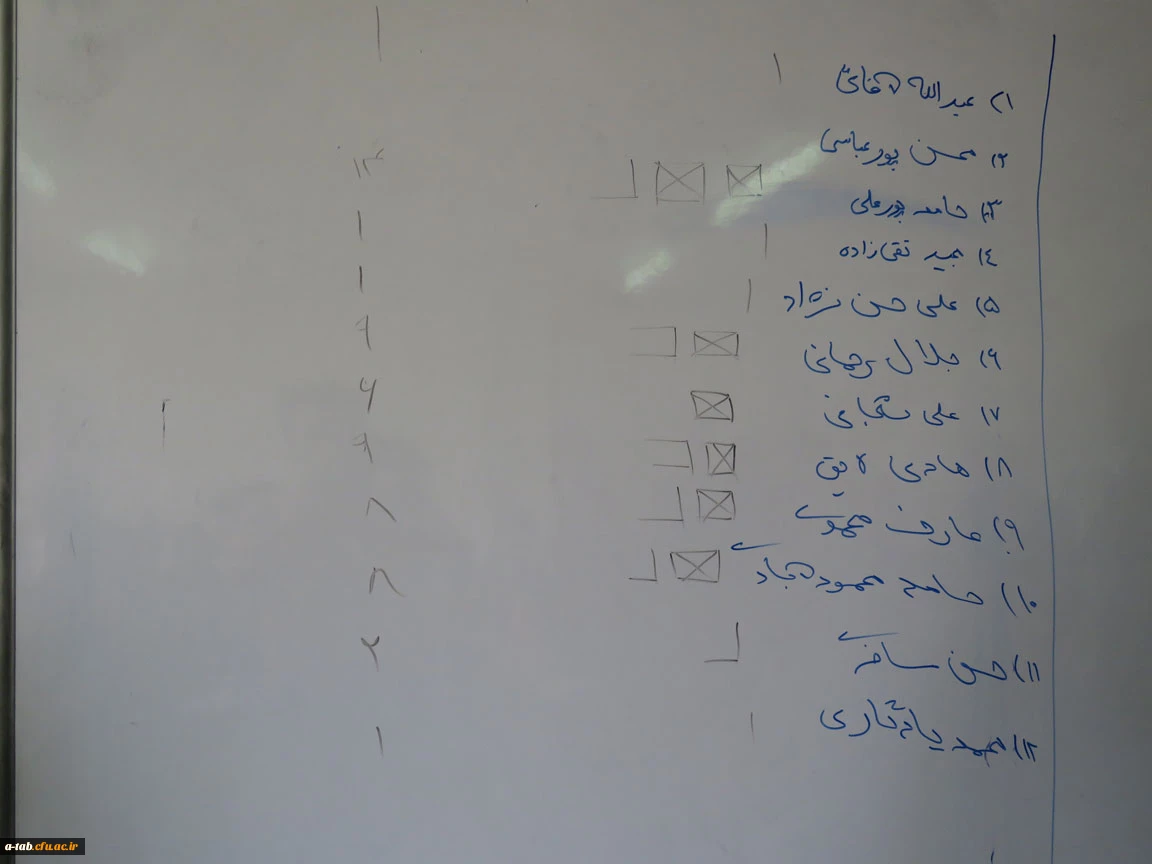 ۱) عبدالله آقائی ۱
۲) محسن پورعباسی ۱۲
۳) حامد پورعلی ۱
۴) مجید تقی‌زاده ۱
۵) علی حسن نژاد
۶) جلال رحمانی ۹
۷) علی شجاعی ۶
۸) هادی لایق ۹
۹) عارف محمودی ۸
۱۰) حامد محمودآبادی ۸
۱۱) حسن مسافری ۲
۱۲) محمد یادگاری ۱
a-tab.cfu.ac.ir